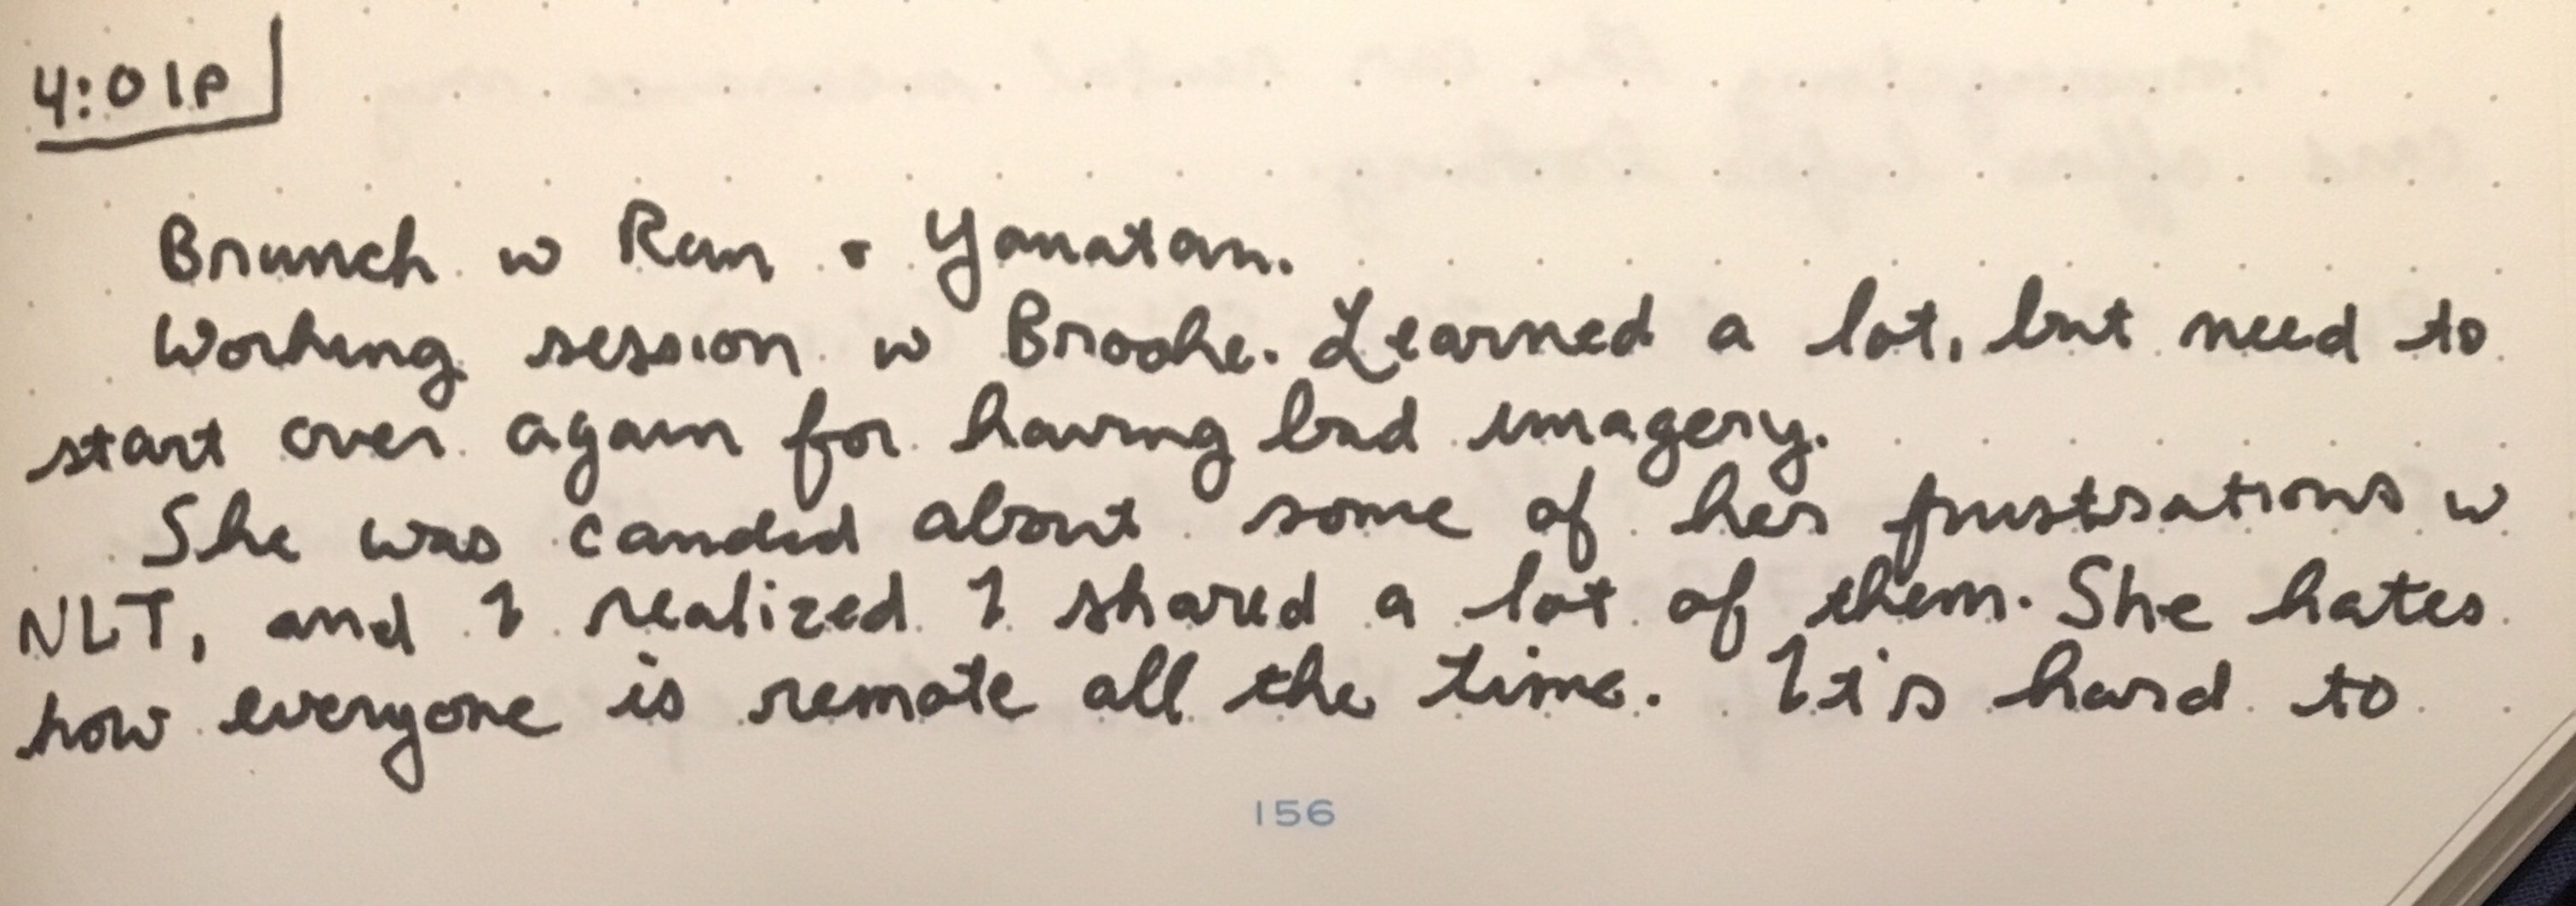 4:01P
Brunch w Ran + Yonatan.
Working session w Brooke. Learned a lot, but need to
start over again for having bad imagery.
She was candid about some of her frustrations w
NLT, and I realized I shared a lot of them. She hates
how everyone is remote all the time. It's hard to
156